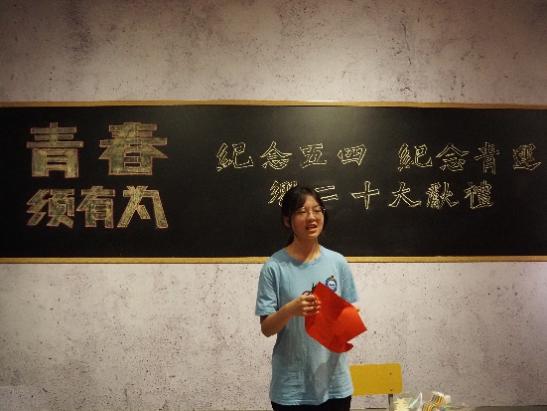 青春
须有为
紀念五四 紀念青運
二十大獻禮